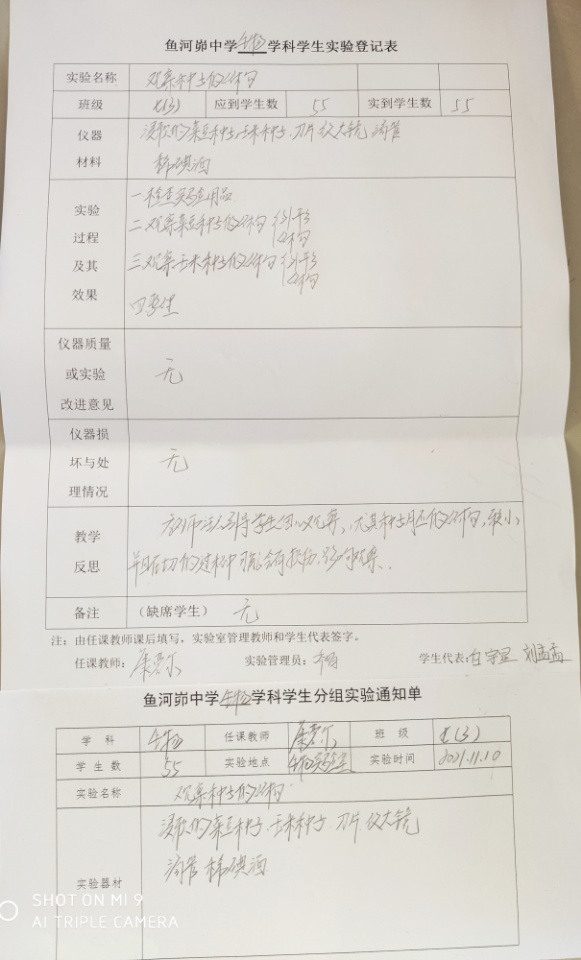 鱼河峁中学生物学科学生实验登记表
实验名称 观察种子的结构
班级 七(3) 应到学生数 55 实到学生数 55
仪器 浸软的菜豆种子、玉米种子、刀片、放大镜 滴管
材料 稀碘酒
实验 一检查实验用品
过程 二观察菜豆种子的结构 外形 结构
及其 三观察玉米种子的结构 外形 结构
效果
仪器质量
或实验 无
改进意见
仪器损
坏与处 无
理情况
教学 教师注意引导学生细心观察、尤其种子胚的结构,较小,
反思 并且在切的过程中可能会有损伤、影响效果.
备注 (缺席学生) 无
注:由任课教师课后填写,实验室管理教师和学生代表签字。
任课教师: 实验管理员: 学生代表:
鱼河峁中学生物学科学生分组实验通知单
学科 生物 任课教师 班级 七(3)
学生数 55 实验地点 生物实验室 实验时间 2021.11.10
实验名称 观察种子的结构
浸软的菜豆种子、玉米种子、刀片、放大镜
滴管 稀碘酒
实验器材
SHOT ON MI 9
AI TRIPLE CAMERA